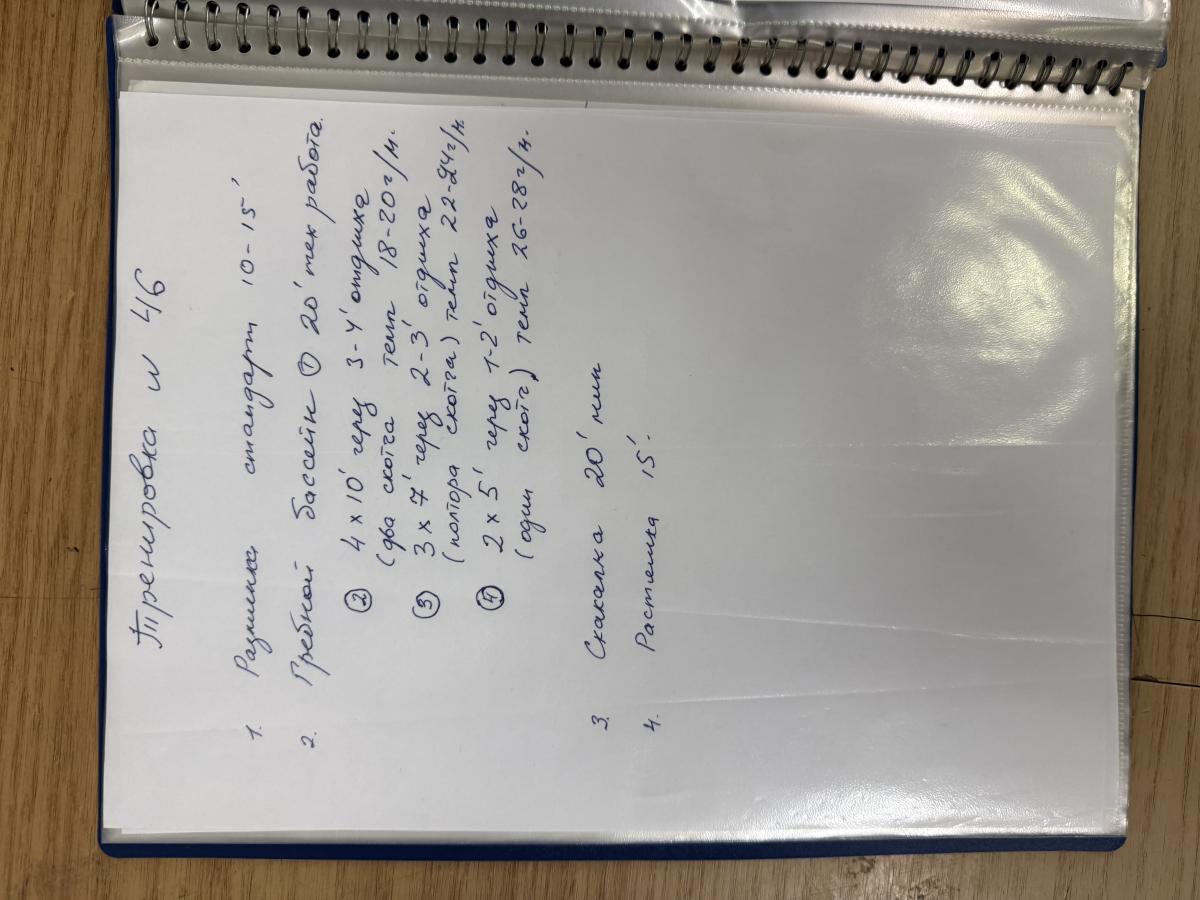 Тренировка и 46
1. Разминка стандарт 10-15'
2. Гребной бассейн ① 20' тех работа.
② 4 x 10' через 3-4' отдыха
(два скотча темп 18-20г/м.
③ 3 x 7' через 2-3' отдыха
(полтора скотча) темп 22-24г/м.
④ 2 x 5' через 1-2' отдыха
(один скотч) темп 26-28г/м.
3. Скакалка 20' мин
4. Растяжка 15'.